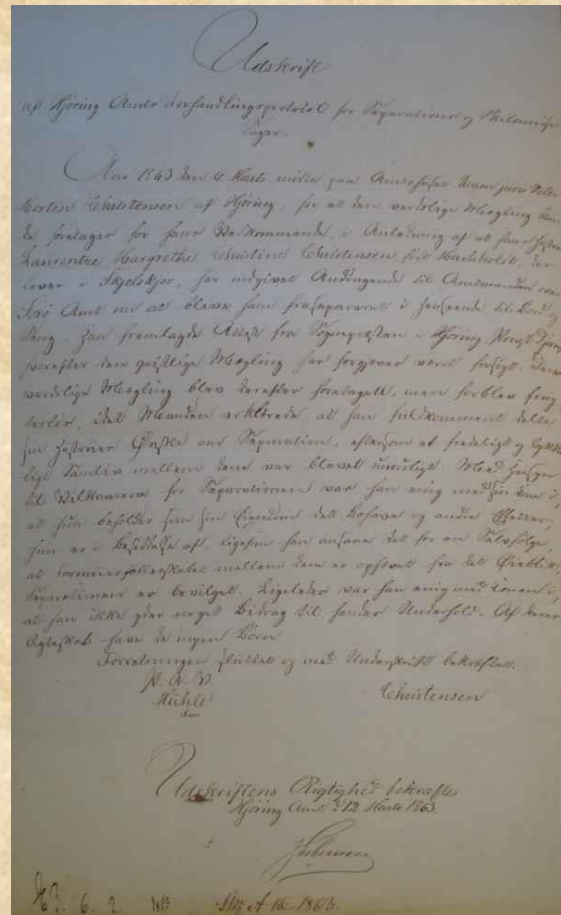 Udskrift
af Hjöring Amts Forhandlingsprotocol for Separations og Skilsmisse
Sager.
Aar 1863 den 6 Marts mötte paa Amtshuset
Morten Christensen af Hjöring, for at den verdslige Mægling kunde
foretages for hans Vedkommende, i Anledning af at hans Hustru
Laurentze Margrethe Christine Christensen, født der
lever i Skjelskjør, har indgivet Andragende til Amtmanden over
Sorö Amt om at blive ham frasepareret i Henseende til Bord og
Seng. Han fremlagde Attest fra Sognepræsten i Hjöring,
hvorefter den geistlige Mægling har forgjæves været forsøgt. Den
verdslige Mægling blev derefter foretaget, men forblev frug
tesløs, idet Manden erklærede, at han fuldkomment delte
sin Hustrues Ønske om Separation, eftersom et fredeligt og lykke
ligt Samliv mellem dem var blevet umuligt. Med Hensyn
til Vilkaarene for Separationen var han enig med sin Kone i,
at hun beholder som sin Eiendom det Bohave og andre Effecter,
hun er i Besiddelse af, ligesom han ansaae det for en Selvfølge,
at Formuesfælledsskabet mellem dem er ophævet fra det Øieblik,
Separationen er bevilget. Ligeledes var han enig med Konen i,
at han ikke yder noget Bidrag til hendes Underhold. Af deres
Ægteskab have de ingen Børn
Forretningen sluttet og med Underskrift bekræftet.
Mühle Christensen
Udskriftens Rigtighed bekræftes
Hjöring Amt d 12 Marts 1863.